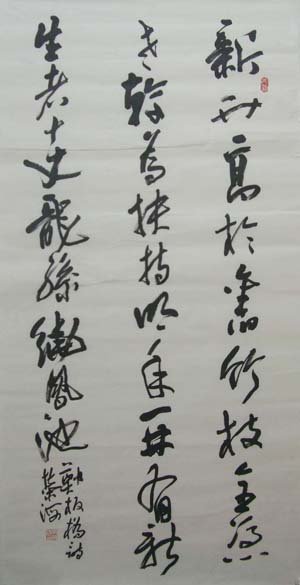 新竹高於舊竹枝全憑
老幹為扶持明年再有新
生者十丈龍孫繞鳳池
鄭板橋詩